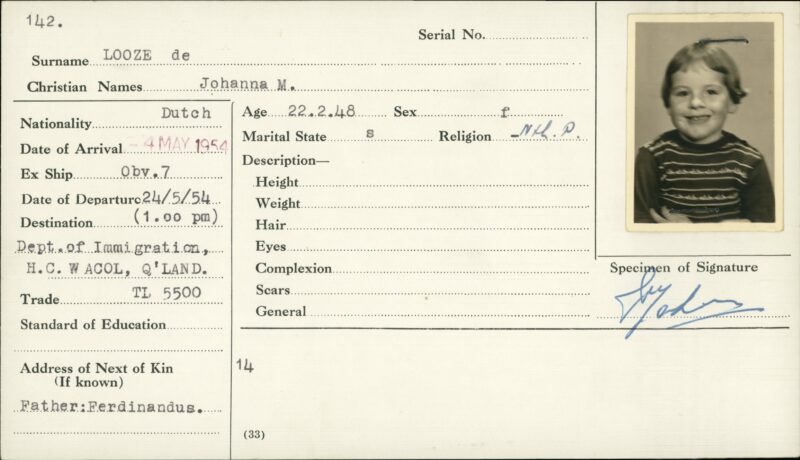 142.
Serial No.
Surname LOOZE de
Christian Names Johanna M.
Nationality Dutch
Date of Arrival -4 MAY 1954
Ex Ship Obv.7
Date of Departure 24/5/54
Destination (1.00 pm)
Dept.of Immigration,
H.C. WACOL, Q'LAND.
Trade TL 5500
Standard of Education
Address of Next of Kin
(If known)
Father:Ferdinandus.
Age 22.2.48 Sex f
Marital State s Religion
Description—
Height
Weight
Hair
Eyes
Complexion
Scars
General
14
(33)
Specimen of Signature